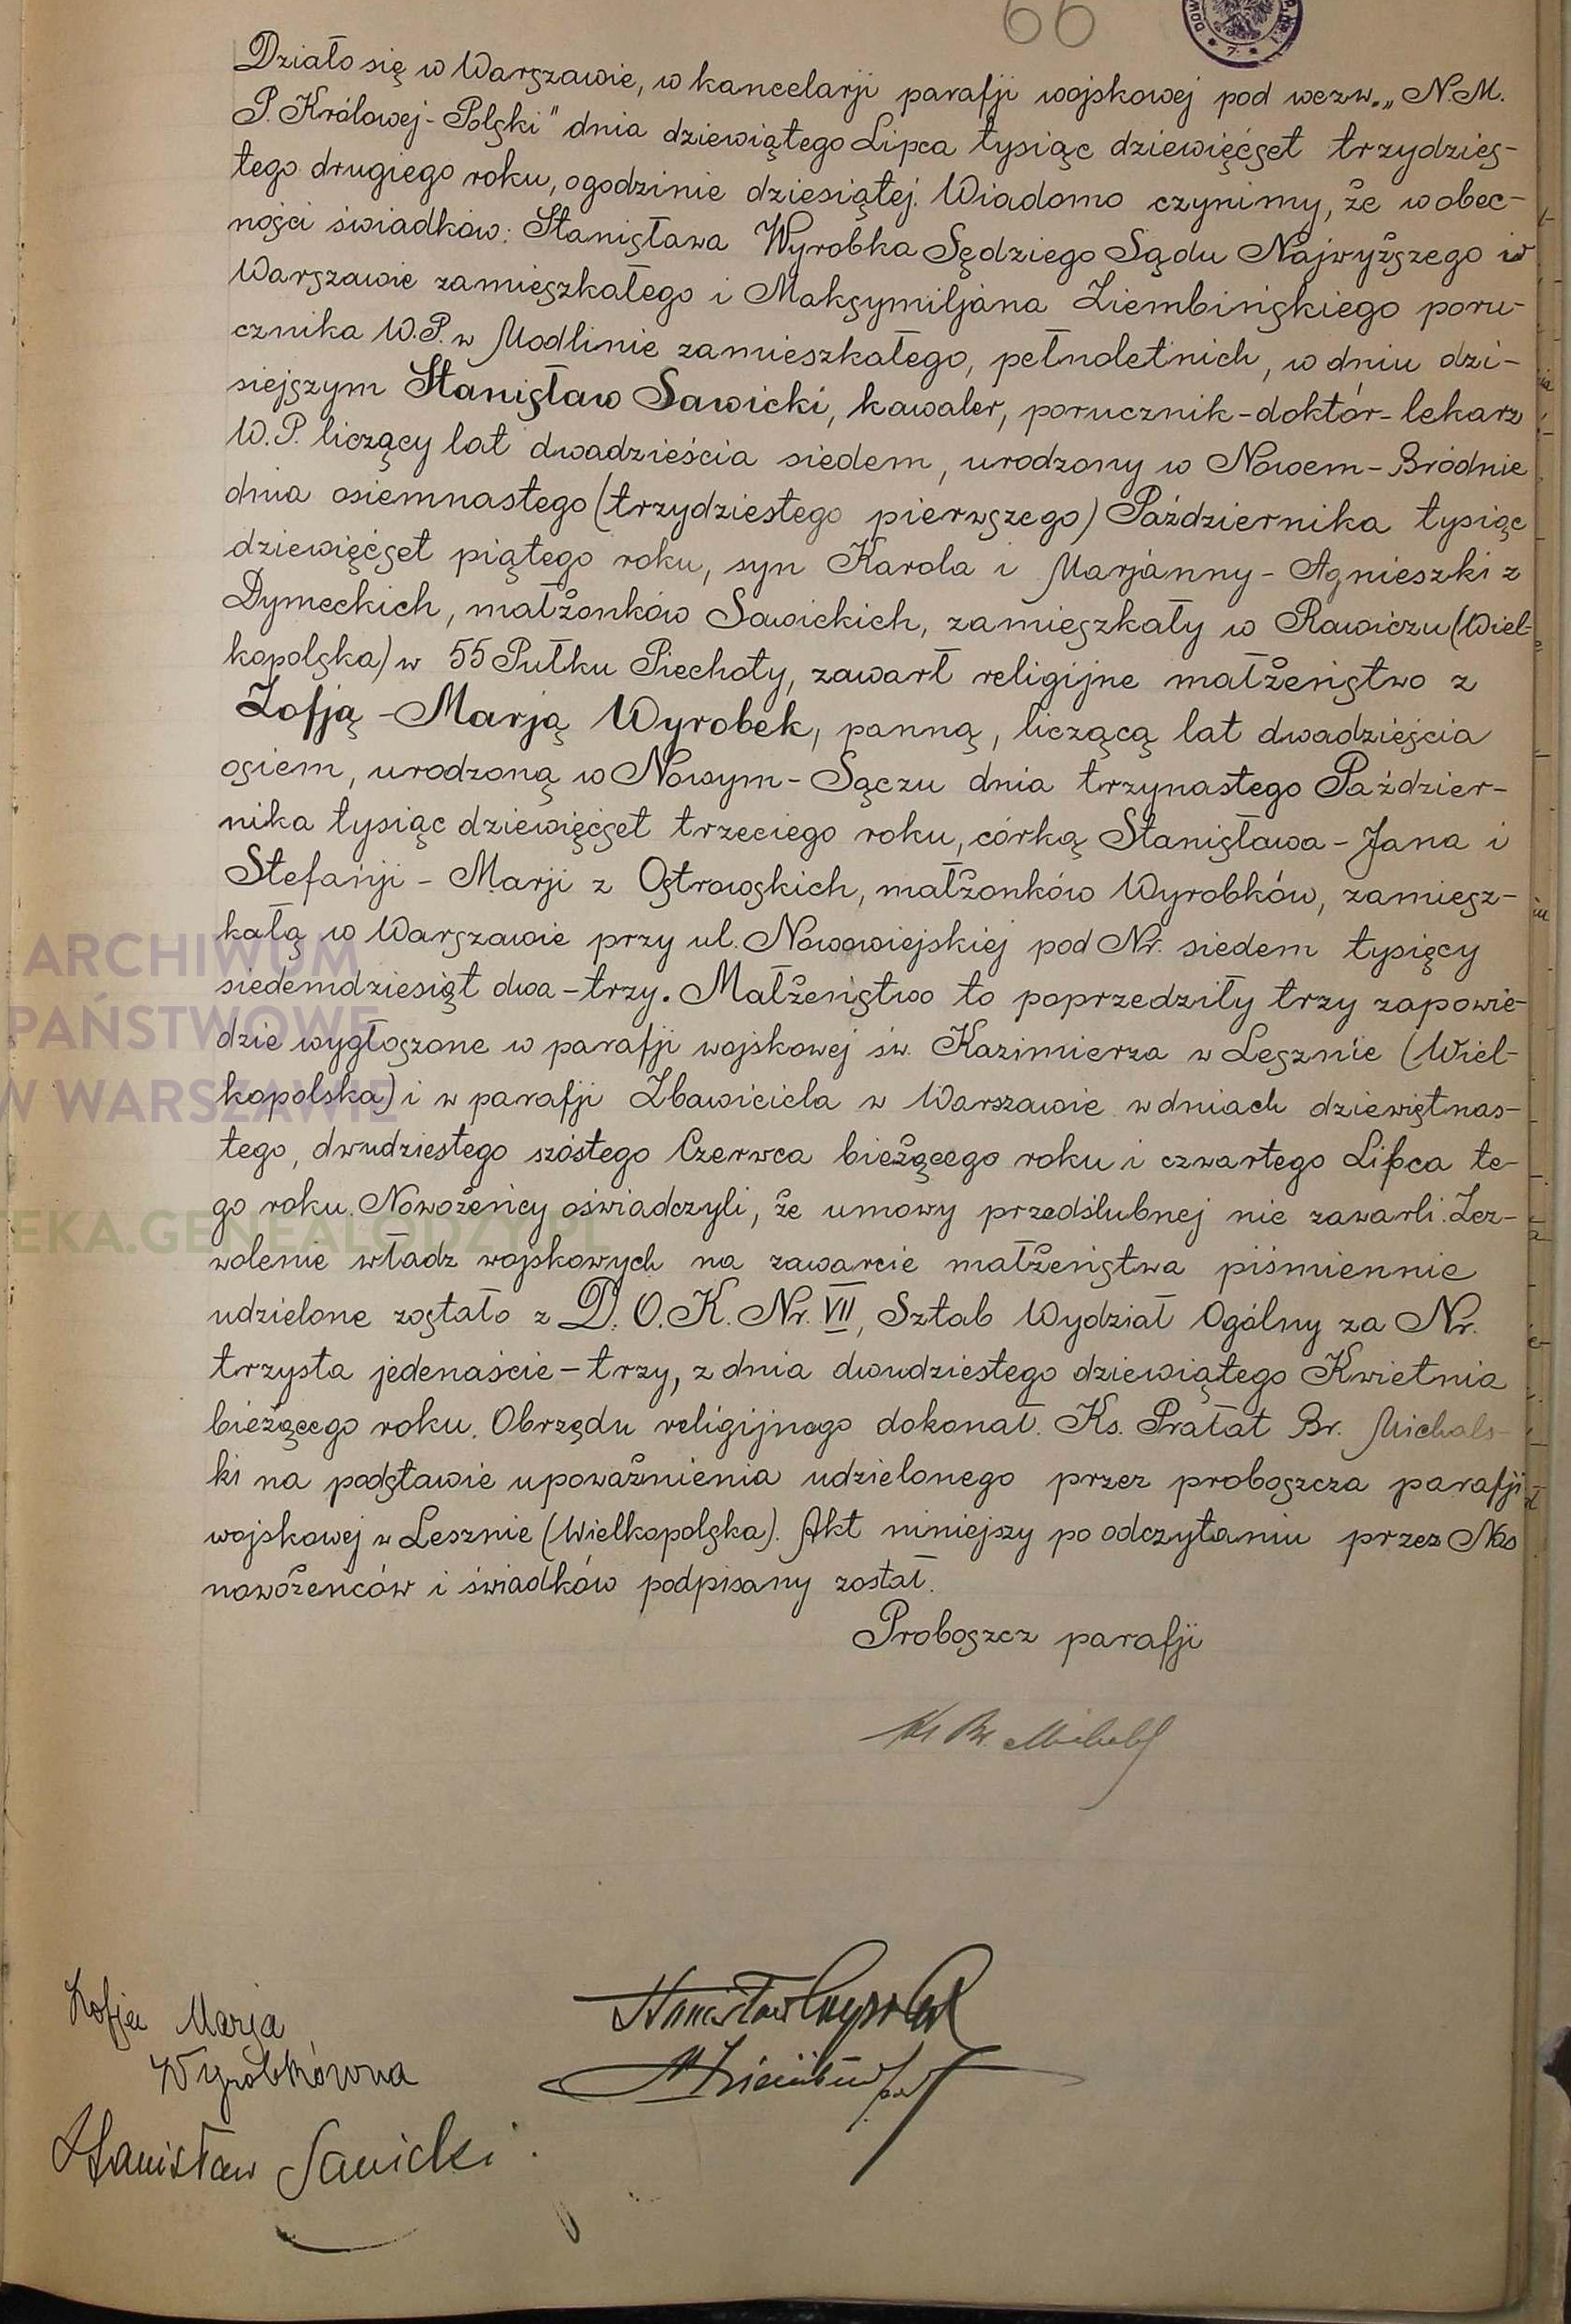 66
Działo się w Warszawie, w kancelarji parafji wojskowej pod wezw. „N.M.
P. Królowej-Polski" dnia dziewiątego Lipca tysiąc dziewięćset trzydzies-
tego drugiego roku, o godzinie dziesiątej. Wiadomo czynimy, że w obec-
ności świadków: Stanisława Wyrobka Sędziego Sądu Najwyższego w
Warszawie zamieszkałego i Maksymiljana Ziembińskiego poru-
cznika W.P. w Modlinie zamieszkałego, pełnoletnich, w dniu dzi-
siejszym Stanisław Sawicki, kawaler, porucznik-doktór-lekarz
W.P. liczący lat dwadzieścia siedem, urodzony w Nowem-Bródnie
dnia osiemnastego (trzydziestego pierwszego) Października tysiąc
dziewięćset piątego roku, syn Karola i Marjanny-Agnieszki z
Dymeckich, małżonków Sawickich, zamieszkały w Rawiczu (Wiel-
kopolska) w 55 Pułku Piechoty, zawarł religijne małżeństwo z
Zofją-Marją Wyrobek, panną, liczącą lat dwadzieścia
osiem, urodzoną w Nowym-Sączu dnia trzynastego Paździer-
nika tysiąc dziewięćset trzeciego roku, córką Stanisława-Jana i
Stefanji-Marji z Ostrowskich, małżonków Wyrobków, zamiesz-
kałą w Warszawie przy ul. Nowowiejskiej pod Nr. siedem tysięcy
siedemdziesiąt dwa-trzy. Małżeństwo to poprzedziły trzy zapowie-
dzie wygłoszone w parafji wojskowej św. Kazimierza w Lesznie (Wiel-
kopolska) i w parafji Zbawiciela w Warszawie w dniach dziewiętnas-
tego, dwudziestego szóstego Czerwca bieżącego roku i czwartego Lipca te-
go roku. Nowożeńcy oświadczyli, że umowy przedślubnej nie zawarli. Zez-
wolenie władz wojskowych na zawarcie małżeństwa piśmiennie
udzielone zostało z D.O.K. Nr. VII, Sztab Wydział Ogólny za Nr.
trzysta jedenaście-trzy, z dnia dwudziestego dziewiątego Kwietnia
bieżącego roku. Obrzędu religijnego dokonał. Ks. Prałat Br. Michals-
ki na podstawie upoważnienia udzielonego przez proboszcza parafji
wojskowej w Lesznie (Wielkopolska). Akt niniejszy po odczytaniu przez Nas
nowożeńców i świadków podpisany został.
Proboszcz parafji
Ks Br. Michalski
Zofja Marja
Wyrobkówna
Stanisław Wyrobek
Stanisław Sawicki
ARCHIWUM
PAŃSTWOWE
W WARSZAWIE
TEKA.GENEALODZY.PL